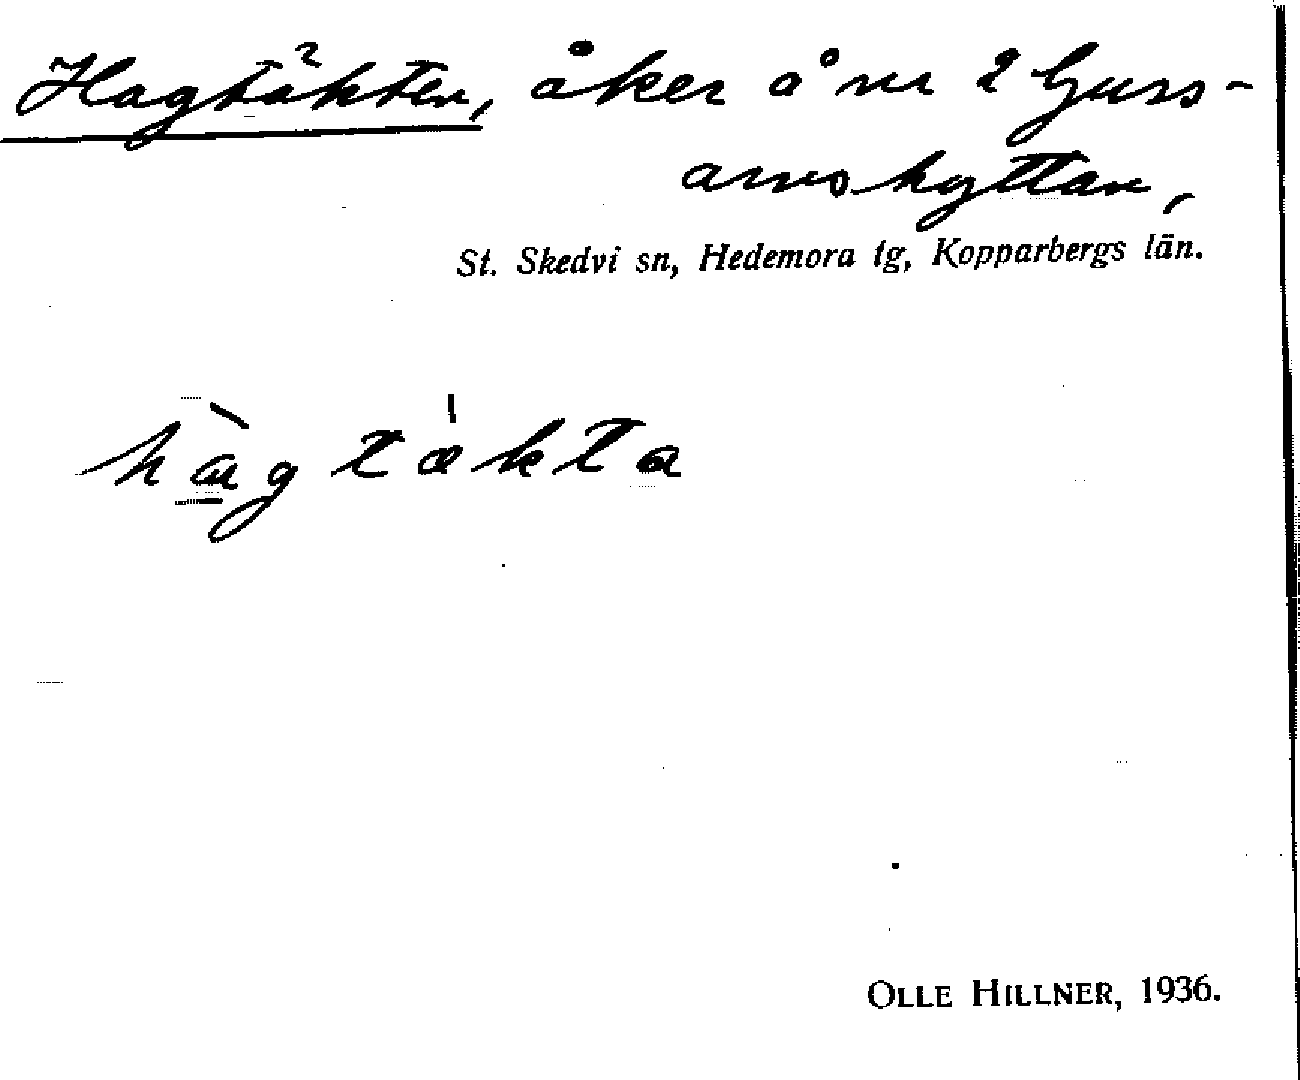 Hagtäkten, åker å nr 2 Gussarvshyttan,
St. Skedvi sn, Hedemora tg, Kopparbergs län.
hàgtækta
OLLE HILLNER, 1936.